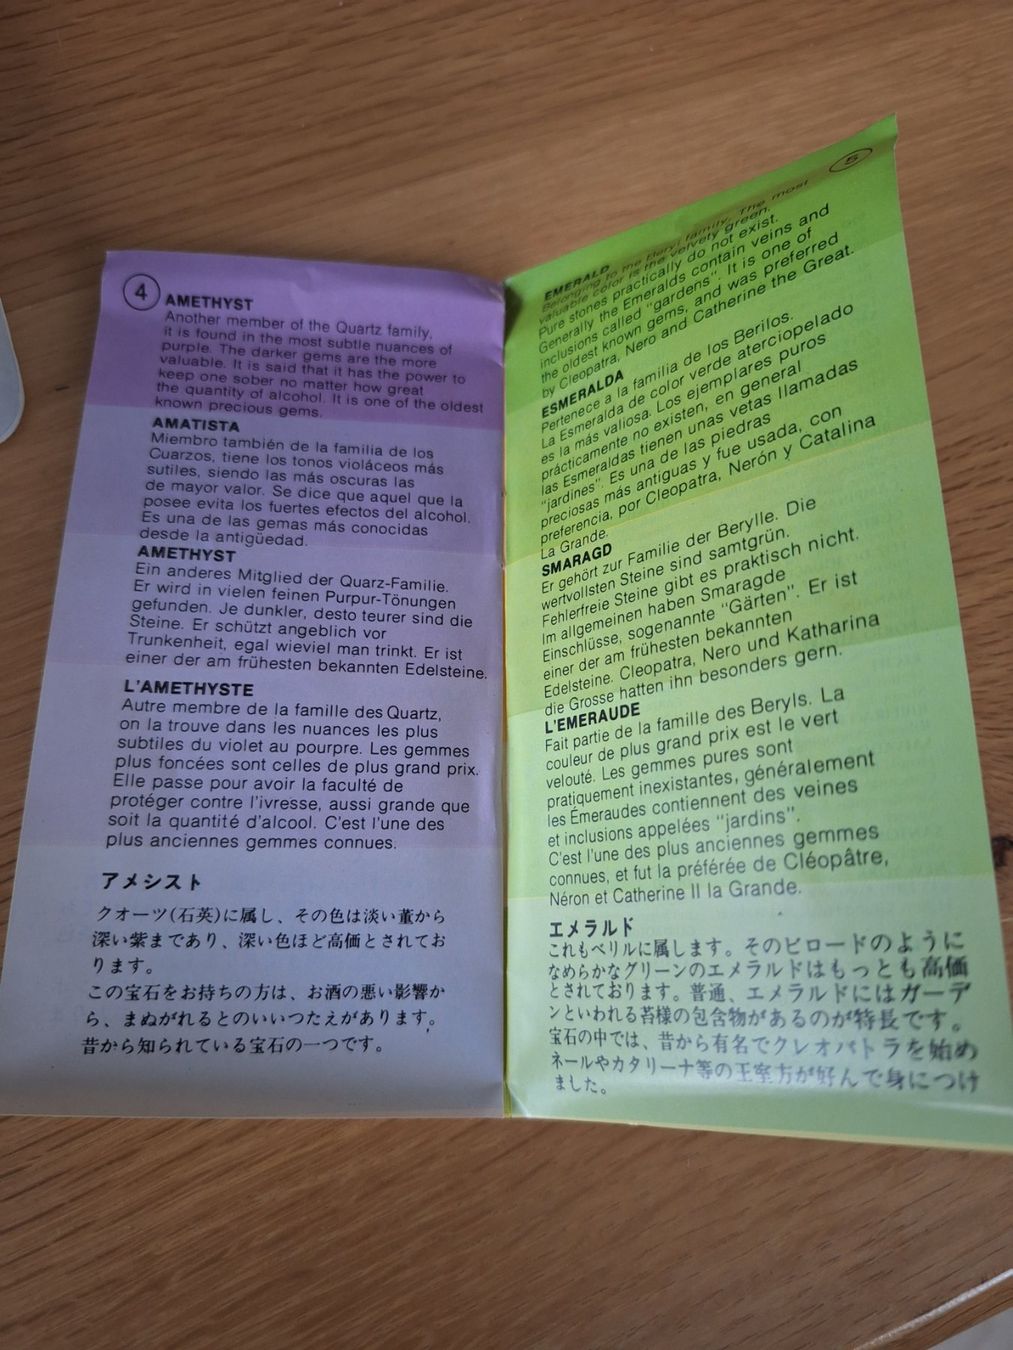 4
AMETHYST
Another member of the Quartz family,
it is found in the most subtle nuances of
purple. The darker gems are the more
valuable. It is said that it has the power to
keep one sober no matter how great
the quantity of alcohol. It is one of the oldest
known precious gems.
AMATISTA
Miembro también de la familia de los
Cuarzos, tiene los tonos violáceos más
sutiles, siendo las más oscuras las
de mayor valor. Se dice que aquel que la
posee evita los fuertes efectos del alcohol.
Es una de las gemas más conocidas
desde la antigüedad.
AMETHYST
Ein anderes Mitglied der Quarz-Familie.
Er wird in vielen feinen Purpur-Tönungen
gefunden. Je dunkler, desto teurer sind die
Steine. Er schützt angeblich vor
Trunkenheit, egal wieviel man trinkt. Er ist
einer der am frühesten bekannten Edelsteine.
L'AMETHYSTE
Autre membre de la famille des Quartz,
on la trouve dans les nuances les plus
subtiles du violet au pourpre. Les gemmes
plus foncées sont celles de plus grand prix.
Elle passe pour avoir la faculté de
protéger contre l'ivresse, aussi grande que
soit la quantité d'alcool. C'est l'une des
plus anciennes gemmes connues.
アメシスト
クオーツ(石英)に属し、その色は淡い菫から
深い紫まであり、深い色ほど高価とされてお
ります。
この宝石をお持ちの方は、お酒の悪い影響か
ら、まぬがれるとのいいつたえがあります。
昔から知られている宝石の一つです。
5
EMERALD
Belonging to the Beryl family. The most
valuable color is the velvety green.
Pure stones practically do not exist.
Generally the Emeralds contain veins and
inclusions called "gardens". It is one of
the oldest known gems, and was preferred
by Cleopatra, Nero and Catherine the Great.
ESMERALDA
Pertenece a la familia de los Berilos.
La Esmeralda de color verde aterciopelado
es la más valiosa. Los ejemplares puros
prácticamente no existen, en general
las Esmeraldas tienen unas vetas llamadas
"jardines". Es una de las piedras
preciosas más antiguas y fue usada, con
preferencia, por Cleopatra, Nerón y Catalina
La Grande.
SMARAGD
Er gehört zur Familie der Berylle. Die
wertvollsten Steine sind samtgrün.
Fehlerfreie Steine gibt es praktisch nicht.
Im allgemeinen haben Smaragde
Einschlüsse, sogenannte "Gärten". Er ist
einer der am frühesten bekannten
Edelsteine. Cleopatra, Nero und Katharina
die Grosse hatten ihn besonders gern.
L'EMERAUDE
Fait partie de la famille des Beryls. La
couleur de plus grand prix est le vert
velouté. Les gemmes pures sont
pratiquement inexistantes, généralement
les Émeraudes contiennent des veines
et inclusions appelées "jardins".
C'est l'une des plus anciennes gemmes
connues, et fut la préférée de Cléopâtre,
Néron et Catherine II la Grande.
エメラルド
これもベリルに属します。そのビロードのように
なめらかなグリーンのエメラルドはもっとも高価
とされております。普通、エメラルドにはガーデ
ンといわれる苔様の包含物があるのが特長です。
宝石の中では、昔から有名でクレオパトラを始め
ネールやカタリーナ等の王室方が好んで身につけ
ました。